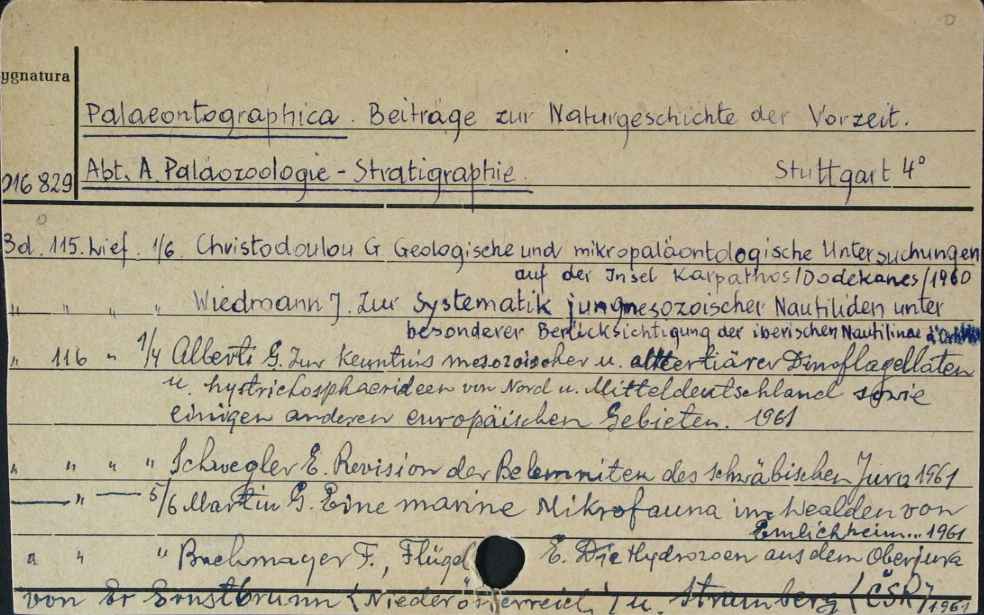 ygnatura
Palaeontographica. Beiträge zur Naturgeschichte der Vorzeit.
Abt. A Paläozoologie - Stratigraphie. Stuttgart 4°
016 829
Bd. 115. Lief. 1/6. Christodoulou G Geologische und mikropaläontologische Untersuchungen
auf der Insel Karpathos/Dodekanes/1960
" " " Wiedmann J. Zur Systematik jungmesozoischer Nautiliden unter
besonderer Berücksichtigung der iberischen Nautilinae
" 116 " 1/4 Alberti G. Zur Kenntnis mesozoischer u. alttertiärer Dinoflagellaten
u. hystrichosphaerideen von Nord u. Mitteldeutschland sowie
einigen anderen europäischen Gebieten. 1961
" " " " Schwegler E. Revision der Belemniten des schwäbischen Jura 1961
" 5/6 Martin G. Eine marine Mikrofauna im Wealden von
Emlichheim... 1961
" " " Bachmayer F., Flügel E. Die Hydrozoen aus dem Oberjura
von Ernstbrunn (Niederösterreich) u. Stramberg (ČSR) 1961